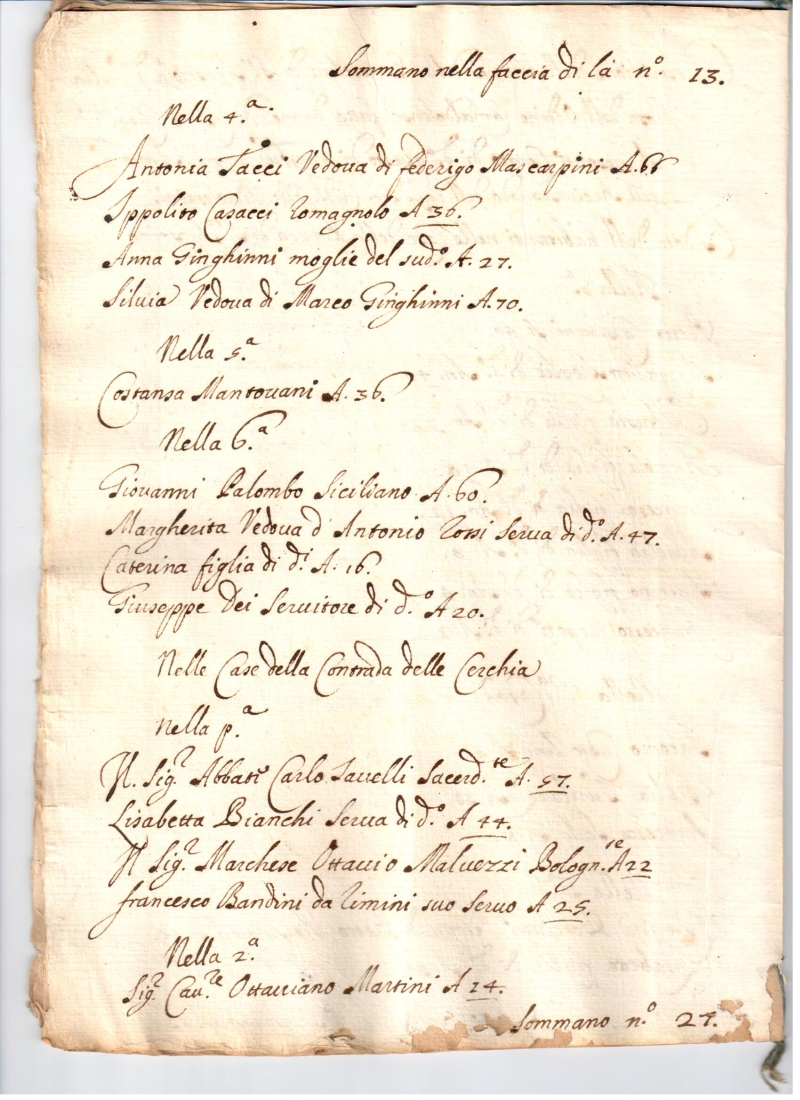 Sommano nella faccia di là n.º 13.
Nella 4.ª
Antonia Tacci Vedoua di federigo Mascarpini A. 66
Ippolito Casacci Romagnolo A 36.
Anna Ginghinni moglie del sud.º A. 27.
Siluia Vedoua di Marco Ginghinni A. 70.
Nella 5.ª
Costansa Mantouani A. 36.
Nella 6.ª
Giouanni Palombo Siciliano A. 60.
Margherita Vedoua d'Antonio Rossi Serua di d.º A. 47.
Caterina figlia di d.ⁱ A. 16.
Giuseppe Dei Seruitore di d.º A 20.
Nelle Case della Contrada delle Cerchia
Nella p.ª
Il Sig.ʳ Abbate Carlo Sauelli Sacerd.ᵗᵉ A. 57.
Lisabetta Bianchi Serua di d.º A 44.
Il Sig.ʳ Marchese Ottauio Maluezzi Bologn.ˢᵉ A 22
francesco Bandini da Rimini suo Seruo A 25.
Nella 2.ª
Sig.ʳ Cau.ʳᵉ Ottauiano Martini A 24.
Sommano n.º 27.